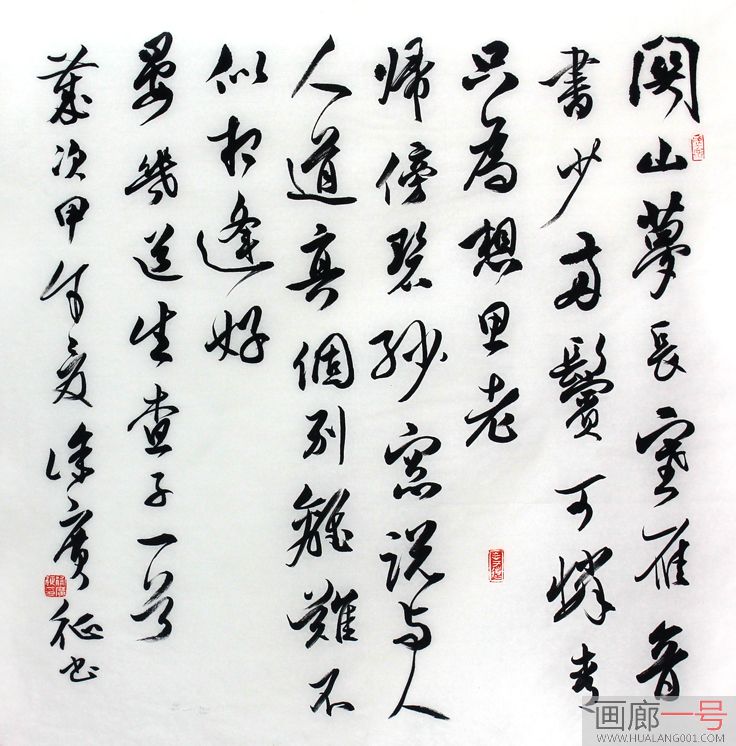 關山夢長塞雁音
書少兩鬢可憐青
只為想思老
歸傍碧紗窗說与人
人道真個別離難不
似相逢好
晏幾道生查子一首
歲次甲午夏徐廣征书
画廊一号
WWW.HUALANG001.COM